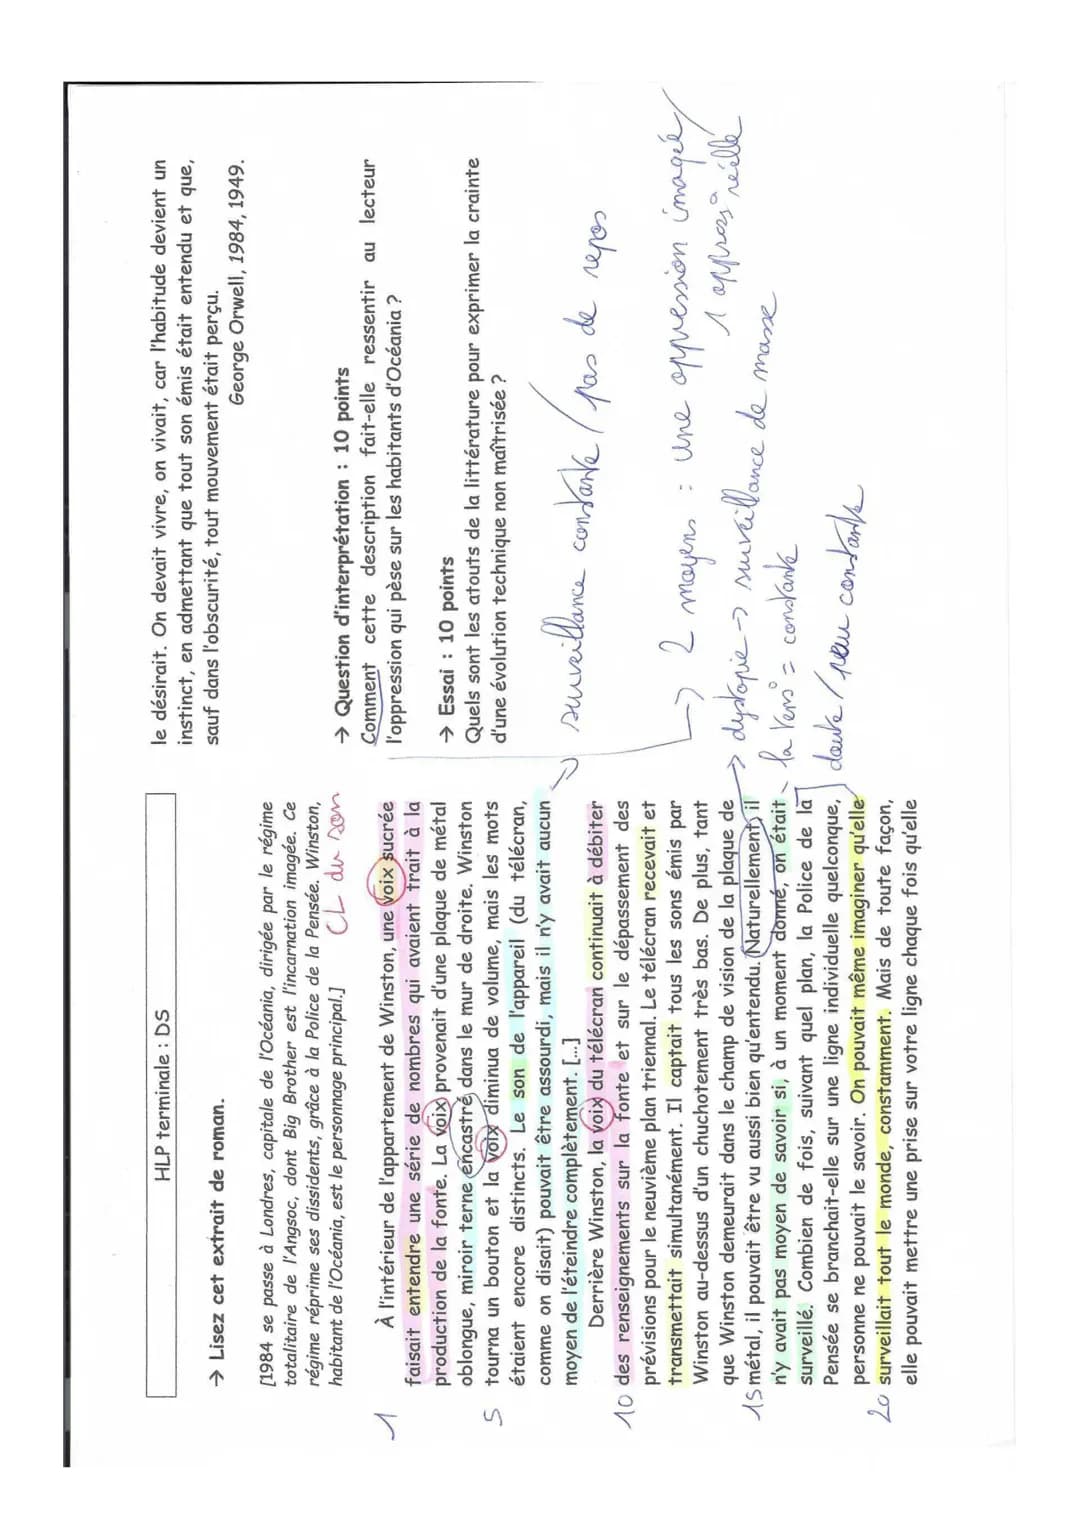 HLP terminale : DS
→ Lisez cet extrait de roman.
[1984 se passe à Londres, capitale de l'Océania, dirigée par le régime
totalitaire de l'Angsoc, dont Big Brother est l'incarnation imagée. Ce
régime réprime ses dissidents, grâce à la Police de la Pensée. Winston,
habitant de l'Océania, est le personnage principal.]
CL du son
1 À l'intérieur de l'appartement de Winston, une voix sucrée
faisait entendre une série de nombres qui avaient trait à la
production de la fonte. La voix provenait d'une plaque de métal
oblongue, miroir terne encastré dans le mur de droite. Winston
5 tourna un bouton et la voix diminua de volume, mais les mots
étaient encore distincts. Le son de l'appareil (du télécran,
comme on disait) pouvait être assourdi, mais il n'y avait aucun
moyen de l'éteindre complètement. [...]
Derrière Winston, la voix du télécran continuait à débiter
10 des renseignements sur la fonte et sur le dépassement des
prévisions pour le neuvième plan triennal. Le télécran recevait et
transmettait simultanément. Il captait tous les sons émis par
Winston au-dessus d'un chuchotement très bas. De plus, tant
que Winston demeurait dans le champ de vision de la plaque de
15 métal, il pouvait être vu aussi bien qu'entendu. Naturellement, il
n'y avait pas moyen de savoir si, à un moment donné, on était
surveillé. Combien de fois, suivant quel plan, la Police de la
Pensée se branchait-elle sur une ligne individuelle quelconque,
personne ne pouvait le savoir. On pouvait même imaginer qu'elle
20 surveillait tout le monde, constamment. Mais de toute façon,
elle pouvait mettre une prise sur votre ligne chaque fois qu'elle
le désirait. On devait vivre, on vivait, car l'habitude devient un
instinct, en admettant que tout son émis était entendu et que,
sauf dans l'obscurité, tout mouvement était perçu.
George Orwell, 1984, 1949.
→ Question d'interprétation : 10 points
Comment cette description fait-elle ressentir au lecteur
l'oppression qui pèse sur les habitants d'Océania ?
→ Essai : 10 points
Quels sont les atouts de la littérature pour exprimer la crainte
d'une évolution technique non maîtrisée ?
surveillance constante / pas de repos
→ 2 moyens : une oppression imagée /
1 oppress° réelle
→ dystopie → surveillance de masse
la = constante
doute / peur constante